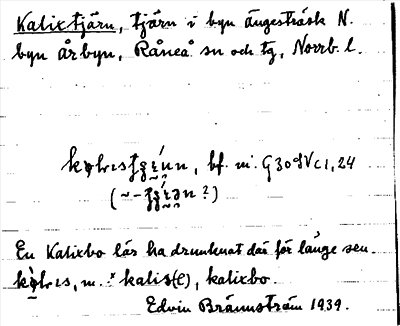 Kalixtjärn, tjärn i byn Ängesträsk N.
byn Årbyn, Råneå sn och tg, Norrb. l.
bf. m. G 30 9 V c 1, 24
En Kalixbo lär ha drunknat där för länge sen.
m. kalis(e), kalixbo.
Edvin Brännström 1939.